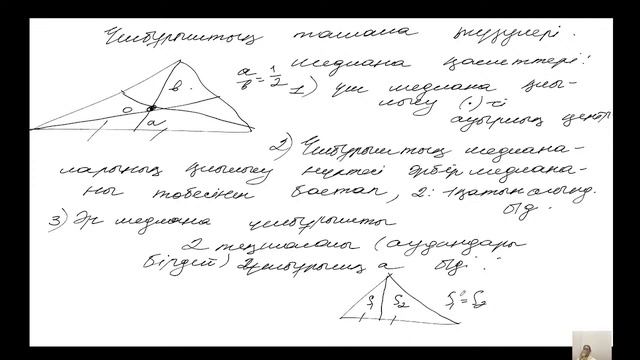 Үшбұрыштың тамаша нүктелері.
медиана қасиеттері:
a/b = 1/2
1) үш медиана қиы-
лысу (·)-сі
ауырлық центрі
b
O
a
2) Үшбұрыштың медиана-
ларының қиылысу нүктесі әрбір медиана-
ны төбесінен бастап, 2:1 қатынасында
бөд.
3) Әр медиана үшбұрышты
2 теңшамалы (аудандары
бірдей) үшбұрышқа бөледі.
S1 S2 S1 = S2